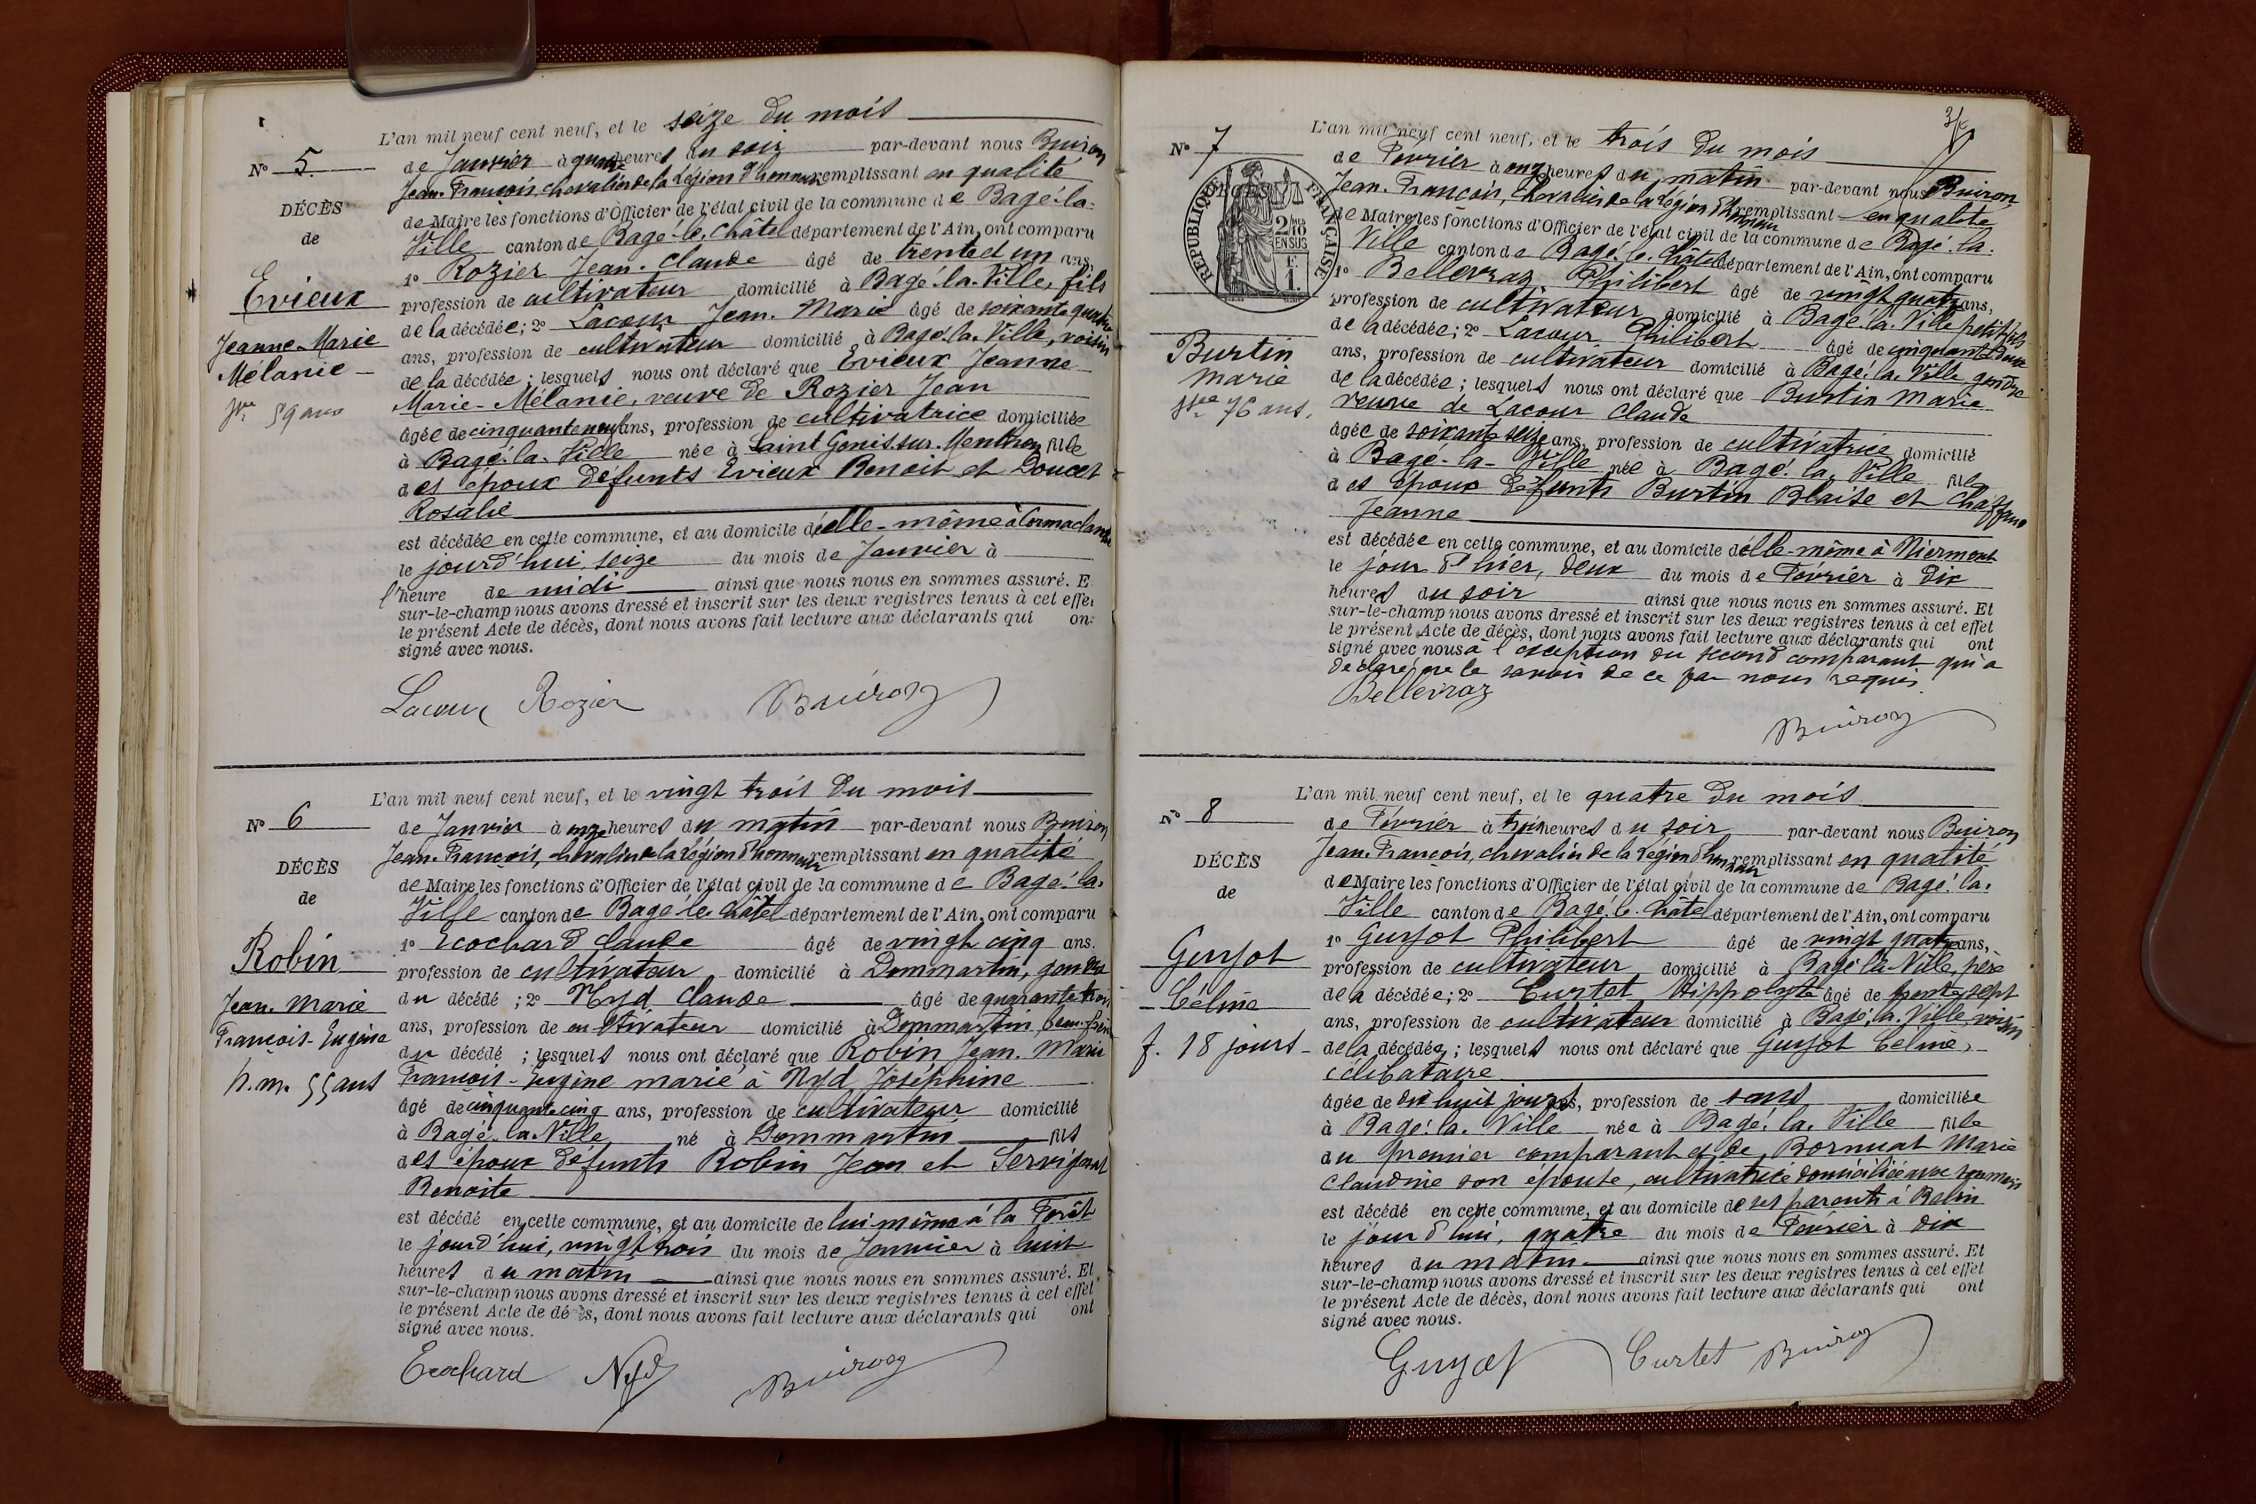 L'an mil neuf cent neuf, et le seize du mois
N° 5. de Janvier à quatre heures du soir par-devant nous Buiron
Jean-François, chevalier de la Légion d'honneur remplissant en qualité
DÉCÈS
de Maire les fonctions d'Officier de l'état civil de la commune de Bagé-la-
de
Ville canton de Bagé-le-Châtel département de l'Ain, ont comparu
1° Rozier Jean-Claude âgé de trente et un ans,
Evieux
profession de cultivateur domicilié à Bagé-la-Ville, fils
de la décédée; 2° Lacour Jean-Marie âgé de soixante quatre
Jeanne-Marie
ans, profession de cultivateur domicilié à Bagé-la-Ville, voisin
Mélanie
de la décédée; lesquels nous ont déclaré que Evieux Jeanne-
Marie-Mélanie, veuve de Rozier Jean
fve 59 ans
âgée de cinquante neuf ans, profession de cultivatrice domiciliée
à Bagé-la-Ville née à Saint Genis-sur-Menthon fille
des époux défunts Evieux Benoit et Doucet
Rosalie
est décédée en cette commune, et au domicile d'elle-même à Cormaclanche
le jourd'hui, seize du mois de Janvier à
l'heure de midi ainsi que nous nous en sommes assuré. E
sur-le-champ nous avons dressé et inscrit sur les deux registres tenus à cet effet
le présent Acte de décès, dont nous avons fait lecture aux déclarants qui ont
signé avec nous.
Lacour Rozier Buiron
L'an mil neuf cent neuf, et le vingt trois du mois
N° 6 de Janvier à onze heures du matin par-devant nous Buiron
Jean-François, chevalier de la Légion d'honneur remplissant en qualité
DÉCÈS
de Maire les fonctions d'Officier de l'état civil de la commune de Bagé-la-
de
Ville canton de Bagé-le-Châtel département de l'Ain, ont comparu
1° Ecochard Claude âgé de vingt cinq ans.
Robin
profession de cultivateur domicilié à Dommartin, gendre
Jean-Marie
du décédé; 2° Nyd Claude âgé de quarante trois
François-Eugène
ans, profession de cultivateur domicilié à Dommartin, beau-frère
du décédé; lesquels nous ont déclaré que Robin Jean-Marie
h.m. 55 ans
François-Eugène marié à Nyd Joséphine
âgé de cinquante cinq ans, profession de cultivateur domicilié
à Bagé-la-Ville né à Dommartin fils
des époux défunts Robin Jean et Servignat
Benoite
est décédé en cette commune, et au domicile de lui-même à la Forêt
le jourd'hui, vingt trois du mois de Janvier à huit
heures du matin ainsi que nous nous en sommes assuré. Et
sur-le-champ nous avons dressé et inscrit sur les deux registres tenus à cet effet
le présent Acte de décès, dont nous avons fait lecture aux déclarants qui ont
signé avec nous.
Ecochard Nyd Buiron
L'an mil neuf cent neuf, et le trois du mois
N° 7 de Février à onze heures du matin par-devant nous Buiron
Jean-François, chevalier de la Légion d'honneur remplissant en qualité
RÉPUBLIQUE FRANÇAISE
2/10 EN SUS
F. 1.
de Maire les fonctions d'Officier de l'état civil de la commune de Bagé-la-
Ville canton de Bagé-le-Châtel département de l'Ain, ont comparu
1° Bellevraz Philibert âgé de vingt quatre ans,
profession de cultivateur domicilié à Bagé-la-Ville petit fils
de la décédée; 2° Lacour Philibert âgé de cinquante deux
Burtin
ans, profession de cultivateur domicilié à Bagé-la-Ville gendre
Marie
de la décédée; lesquels nous ont déclaré que Burtin Marie
fve 76 ans.
veuve de Lacour Claude
âgée de soixante seize ans, profession de cultivatrice domicilié
à Bagé-la-Ville née à Bagé-la-Ville fille
des époux défunts Burtin Blaise et
Jeanne
est décédée en cette commune, et au domicile d'elle-même à Niermont
le jour d'hier, deux du mois de Février à dix
heures du soir ainsi que nous nous en sommes assuré. Et
sur-le-champ nous avons dressé et inscrit sur les deux registres tenus à cet effet
le présent Acte de décès, dont nous avons fait lecture aux déclarants qui ont
signé avec nous à l'exception du second comparant qui a
déclaré ne le savoir de ce par nous requis.
Bellevraz
Buiron
L'an mil neuf cent neuf, et le quatre du mois
N° 8 de Février à trois heures du soir par-devant nous Buiron
Jean-François, chevalier de la Légion d'honneur remplissant en qualité
DÉCÈS
de Maire les fonctions d'Officier de l'état civil de la commune de Bagé-la-
de
Ville canton de Bagé-le-Châtel département de l'Ain, ont comparu
1° Guyot Philibert âgé de vingt quatre ans,
Guyot
profession de cultivateur domicilié à Bagé-la-Ville, père
Céline
de la décédée; 2° Curtet Hippolyte âgé de trente sept
ans, profession de cultivateur domicilié à Bagé-la-Ville, voisin
f. 18 jours
de la décédée; lesquels nous ont déclaré que Guyot Céline,
célibataire
âgée de dix huit jours, profession de sans domiciliée
à Bagé-la-Ville née à Bagé-la-Ville fille
du premier comparant et de Bornuat Marie
Claudine son épouse, cultivatrice domiciliée avec son mari
est décédé en cette commune, et au domicile de ses parents à Belin
le jourd'hui, quatre du mois de Février à dix
heures du matin ainsi que nous nous en sommes assuré. Et
sur-le-champ nous avons dressé et inscrit sur les deux registres tenus à cet effet
le présent Acte de décès, dont nous avons fait lecture aux déclarants qui ont
signé avec nous.
Guyot Curtet Buiron